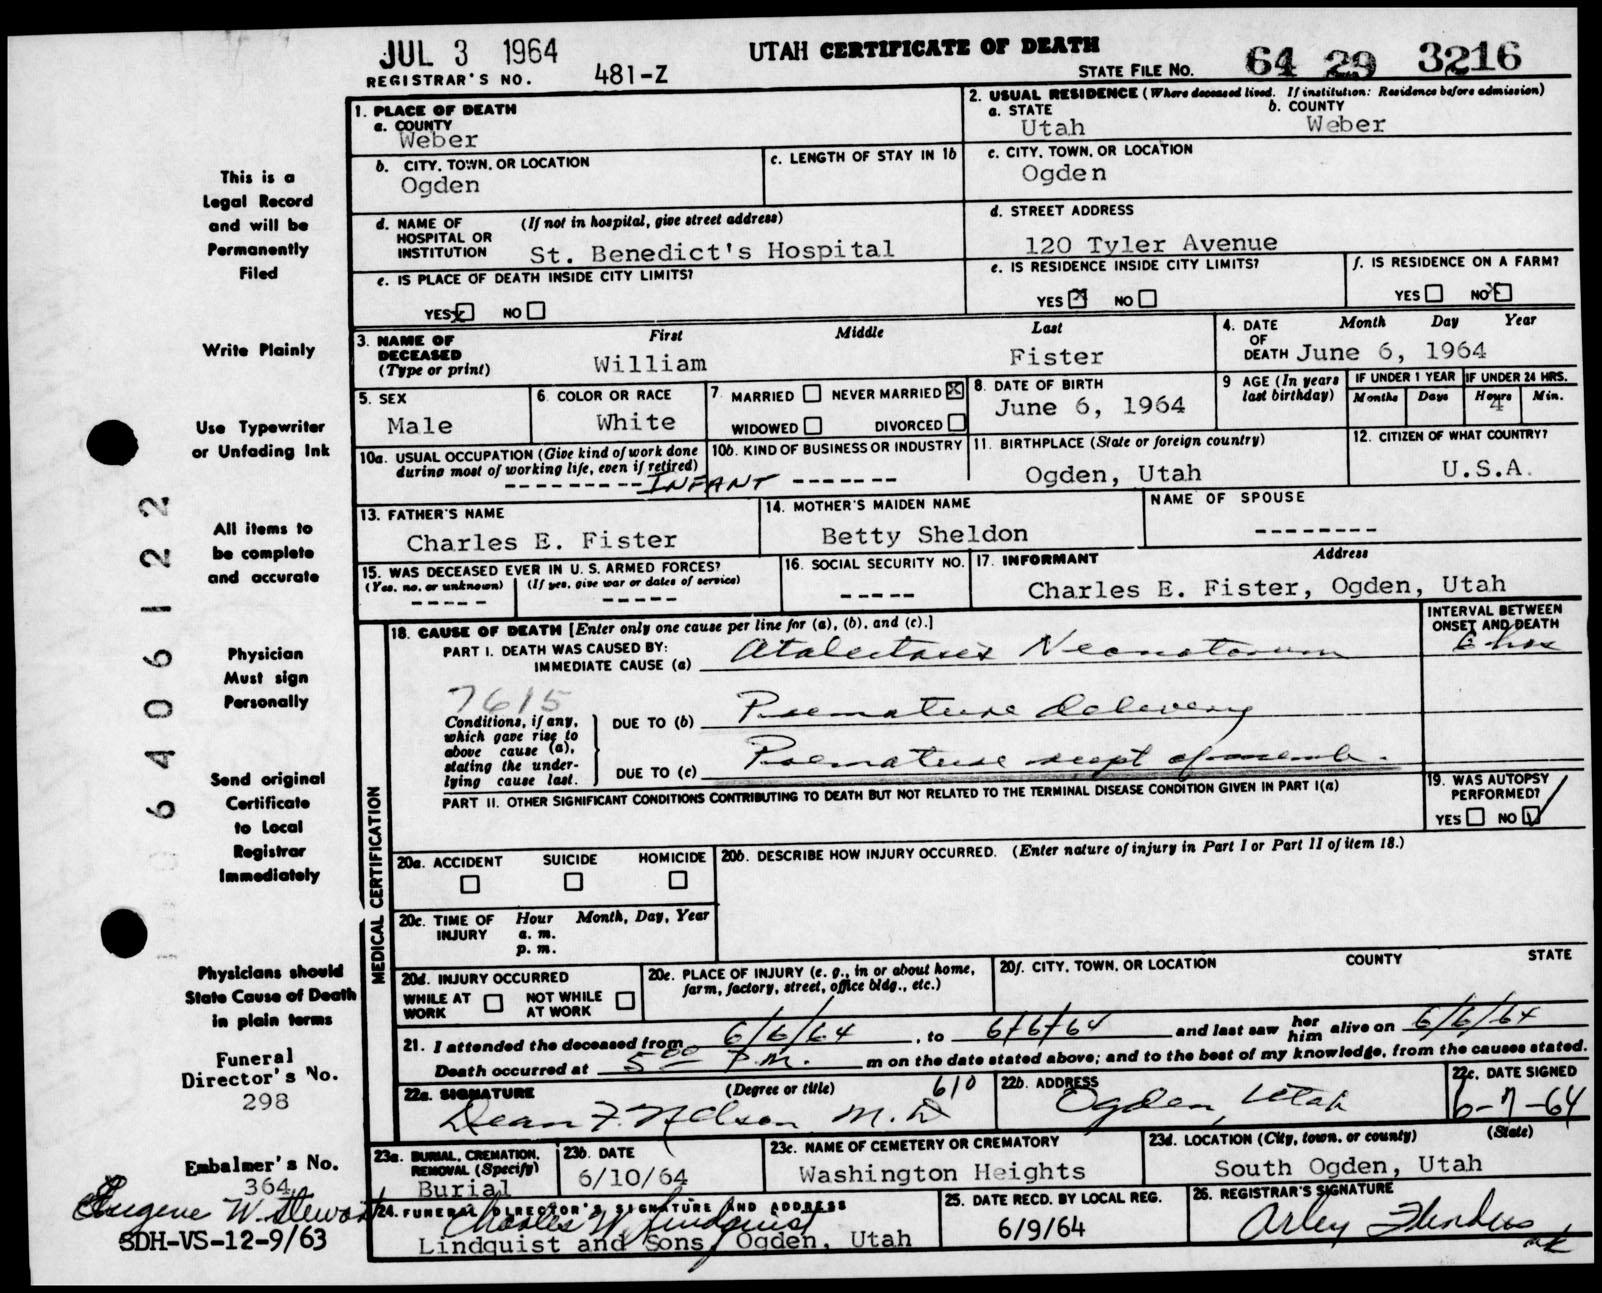 JUL 3 1964
UTAH CERTIFICATE OF DEATH
REGISTRAR'S NO. 481-Z
STATE FILE NO. 64 29 3216
1. PLACE OF DEATH
a. COUNTY
Weber
2. USUAL RESIDENCE (Where deceased lived. If institution: Residence before admission)
a. STATE b. COUNTY
Utah Weber
b. CITY, TOWN, OR LOCATION
Ogden
c. LENGTH OF STAY IN 1b
c. CITY, TOWN, OR LOCATION
Ogden
d. NAME OF HOSPITAL OR INSTITUTION (If not in hospital, give street address)
St. Benedict's Hospital
d. STREET ADDRESS
120 Tyler Avenue
e. IS PLACE OF DEATH INSIDE CITY LIMITS?
YES NO
e. IS RESIDENCE INSIDE CITY LIMITS?
YES NO
f. IS RESIDENCE ON A FARM?
YES NO
3. NAME OF DECEASED (Type or print)
First Middle Last
William Fister
4. DATE OF DEATH Month Day Year
June 6, 1964
5. SEX
Male
6. COLOR OR RACE
White
7. MARRIED NEVER MARRIED
WIDOWED DIVORCED
8. DATE OF BIRTH
June 6, 1964
9 AGE (In years last birthday)
IF UNDER 1 YEAR IF UNDER 24 HRS.
Months Days Hours Min.
4
10a. USUAL OCCUPATION (Give kind of work done during most of working life, even if retired)
10b. KIND OF BUSINESS OR INDUSTRY
--------- INFANT -------
11. BIRTHPLACE (State or foreign country)
Ogden, Utah
12. CITIZEN OF WHAT COUNTRY?
U.S.A.
13. FATHER'S NAME
Charles E. Fister
14. MOTHER'S MAIDEN NAME
Betty Sheldon
NAME OF SPOUSE
--------
15. WAS DECEASED EVER IN U. S. ARMED FORCES?
(Yes, no, or unknown) (If yes, give war or dates of service)
----- -----
16. SOCIAL SECURITY NO.
-----
17. INFORMANT Address
Charles E. Fister, Ogden, Utah
MEDICAL CERTIFICATION
18. CAUSE OF DEATH [Enter only one cause per line for (a), (b), and (c).]
INTERVAL BETWEEN ONSET AND DEATH
PART I. DEATH WAS CAUSED BY:
IMMEDIATE CAUSE (a) Atalectasis Neonatorum
7615
Conditions, if any, which gave rise to above cause (a), stating the underlying cause last.
DUE TO (b) Premature delivery
DUE TO (c) Premature rupt of memb.
PART II. OTHER SIGNIFICANT CONDITIONS CONTRIBUTING TO DEATH BUT NOT RELATED TO THE TERMINAL DISEASE CONDITION GIVEN IN PART I(a)
19. WAS AUTOPSY PERFORMED?
YES NO
20a. ACCIDENT SUICIDE HOMICIDE
20b. DESCRIBE HOW INJURY OCCURRED. (Enter nature of injury in Part I or Part II of item 18.)
20c. TIME OF INJURY Hour Month, Day, Year
a. m.
p. m.
20d. INJURY OCCURRED
WHILE AT WORK NOT WHILE AT WORK
20e. PLACE OF INJURY (e. g., in or about home, farm, factory, street, office bldg., etc.)
20f. CITY, TOWN, OR LOCATION COUNTY STATE
21. I attended the deceased from 6/6/64, to 6/6/64 and last saw her him alive on 6/6/64
Death occurred at 5 00 P.M. m on the date stated above; and to the best of my knowledge, from the causes stated.
22a. SIGNATURE (Degree or title) 610
Dean F. Nelson M.D
22b. ADDRESS
Ogden, Utah
22c. DATE SIGNED
6-7-64
23a. BURIAL, CREMATION, REMOVAL (Specify)
Burial
23b. DATE
6/10/64
23c. NAME OF CEMETERY OR CREMATORY
Washington Heights
23d. LOCATION (City, town, or county) (State)
South Ogden, Utah
24. FUNERAL DIRECTOR'S SIGNATURE AND ADDRESS
Charles W. Lindquist
Lindquist and Sons, Ogden, Utah
25. DATE RECD. BY LOCAL REG.
6/9/64
26. REGISTRAR'S SIGNATURE
Arley Flinders
This is a
Legal Record
and will be
Permanently
Filed
Write Plainly
Use Typewriter
or Unfading Ink
All items to
be complete
and accurate
Physician
Must sign
Personally
Send original
Certificate
to Local
Registrar
Immediately
Physicians should
State Cause of Death
in plain terms
Funeral
Director's No.
298
Embalmer's No.
364
Eugene W. Stewart
SDH-VS-12-9/63
64 06 122